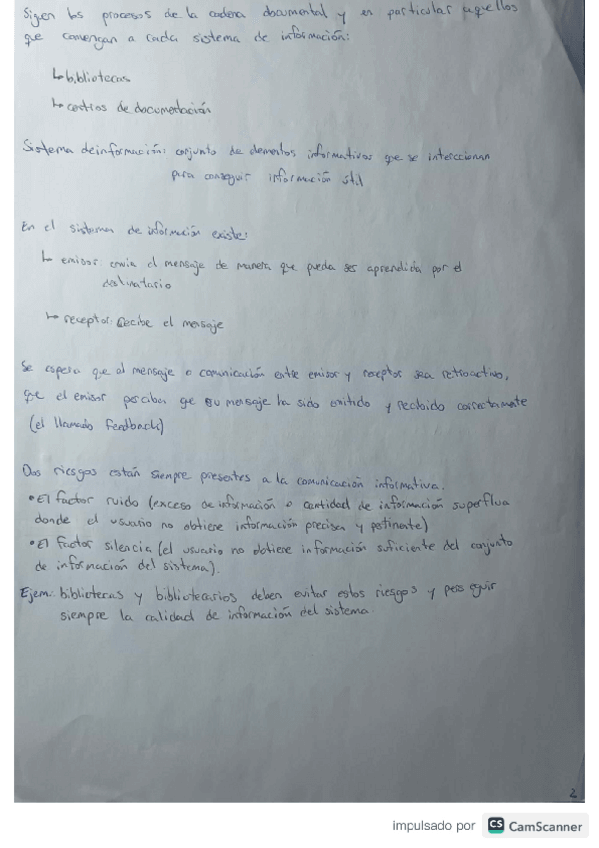 Siguen los procesos de la cadena documental y en particular aquellos
que convengan a cada sistema de información:
↳ bibliotecas
↳ centros de documentación
Sistema de información: conjunto de elementos informativos que se interccionan
para conseguir información útil
En el sistema de información existe:
↳ emisor: envia el mensaje de manera que pueda ser aprendida por el
destinatario
↳ receptor: Recibe el mensaje
Se espera que al mensaje o comunicación entre emisor y receptor sea retroactivo,
que el emisor perciba que su mensaje ha sido emitido y recibido correctamente
(el llamado Feedback)
Dos riesgos están siempre presentes a la comunicación informativa.
• El factor ruido (exceso de información o cantidad de información superflua
donde el usuario no obtiene información precisa y pertinente)
• El factor silencia (el usuario no obtiene información suficiente del conjunto
de información del sistema).
Ejem: bibliotecas y bibliotecarios deben evitar estos riesgos y perseguir
siempre la calidad de información del sistema
2
impulsado por CS CamScanner